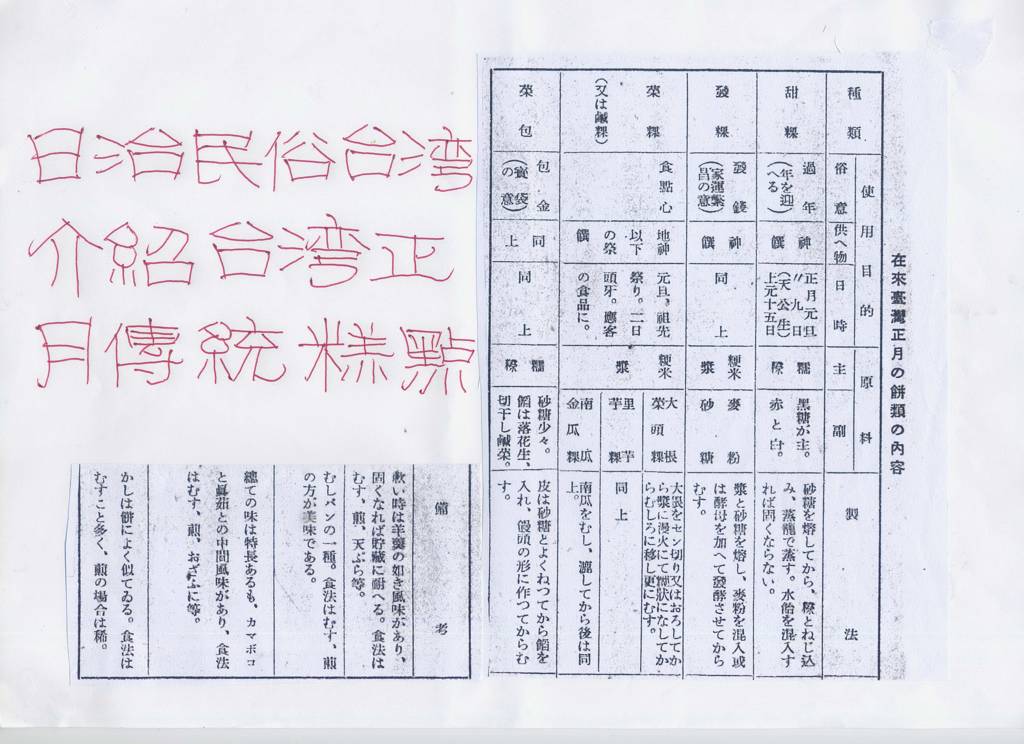 日治民俗台湾
介紹台湾正
月傳統糕點
在來臺灣正月の餅類の內容
種類
使用目的
俗意
供へ物
日時
原料
主
副
製法
甜粿
過年
(年を迎へる)
神饌
正月元旦
〃九日
(天公生)
上元十五日
糯糝
黑糖が主。
赤と白。
砂糖を熔してから、糝とねじ込
み、蒸籠で蒸す。水飴を混入す
れば固くならない。
發粿
發錢
(家運繁昌の意)
神饌
同上
粳米漿
麥粉
砂糖
漿と砂糖を熔し、麥粉を混入或
は酵母を加へて發酵させてから
むす。
菜粿
(又は鹹粿)
食點心
地神以下の祭饌
元旦、祖先
祭り。二日
頭牙。應客
の食品に。
粳米漿
大根
菜頭粿
大畏をセン切り又はおろしてか
ら漿に漫火にて糊狀になしてか
らむしろに移し更にむす。
里芋
芋粿
同上
南瓜
金瓜粿
南瓜をむし、漉してから後は同
上。
菜包
包金
(寶袋の意)
同上
同上
糯糝
砂糖少々。
餡は落花生、
切干し鹹菜。
皮は砂糖とよくねつてから餡を
入れ、饅頭の形に作つてからむ
す。
備考
軟い時は羊羹の如き風味があり、
固くなれば貯藏に耐へる。食法は
むす、煎、天ぷら等。
むしパンの一種。食法はむす、煎
の方が美味である。
總ての味は特長あるも、カマボコ
と眞茹との中間風味があり、食法
はむす、煎、おざふに等。
かしは餅によく似てゐる。食法は
むすこと多く、煎の場合は稀。